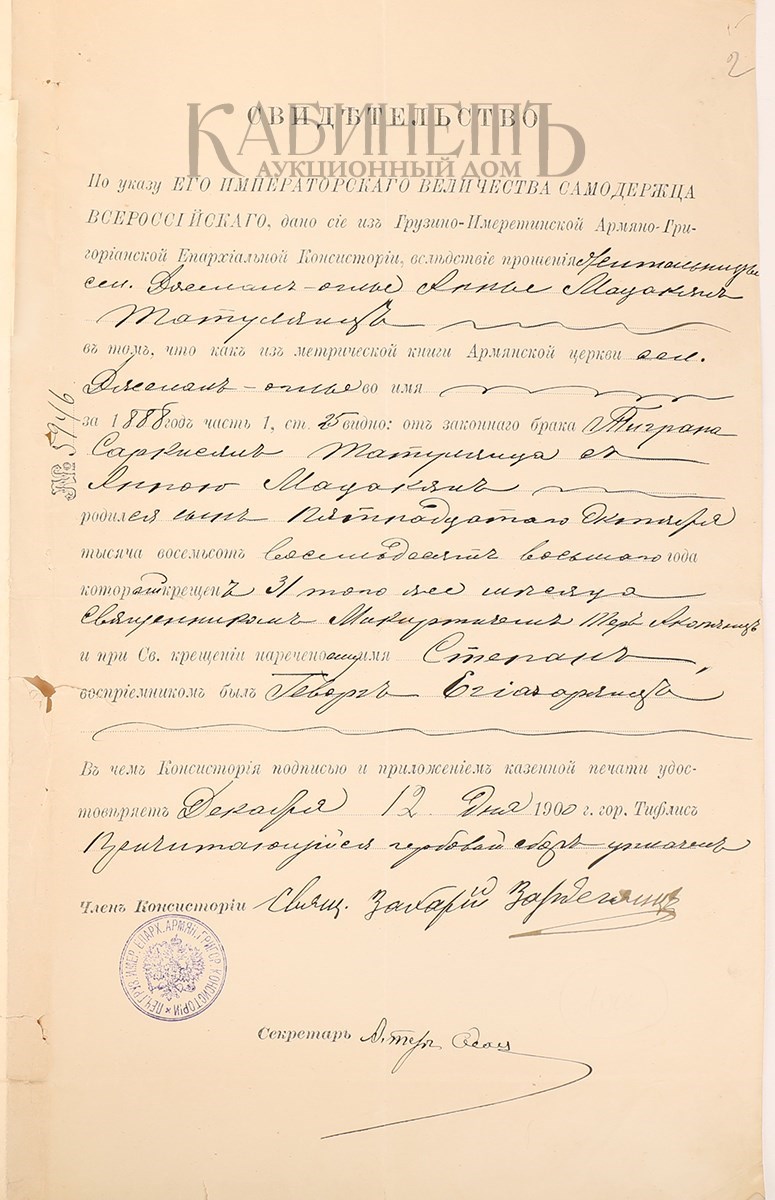 2
СВИДѢТЕЛЬСТВО
КАБИНЕТЪ
АУКЦИОННЫЙ ДОМ
По указу ЕГО ИМПЕРАТОРСКАГО ВЕЛИЧЕСТВА САМОДЕРЖЦА
ВСЕРОССІЙСКАГО, дано сіе изъ Грузино-Имеретинской Армяно-Гри-
горіанской Епархіальной Консисторіи, вслѣдствіе прошенія жительницы
сел. Джелал-оглы Аннѣ Мадакянъ
Татулянцъ
въ томъ, что какъ изъ метрической книги Армянской церкви сел.
Джелалъ-оглы во имя
за 1888 годъ часть 1, ст. 25 видно: отъ законнаго брака Тиграна
Саркисянъ Татулянца съ
Анною Мадакянъ
родился сынъ пятнадцатаго Октября
тысяча восемьсотъ восемьдесятъ восьмаго года
который крещенъ 31 того же мѣсяца
священникомъ Мкиртичемъ Теръ Акопянцъ
и при Св. крещеніи наречено ему имя Степанъ,
воспріемникомъ былъ Геворгъ Егіазарянцъ
Въ чемъ Консисторія подписью и приложеніемъ казенной печати удос-
товѣряетъ Декабря 12 дня 1900 г. гор. Тифлисъ
Причитающійся гербовый сборъ уплаченъ
Членъ Консисторіи Свящ. Захарій
Секретарь А. Теръ
№ 5946
ПЕЧ. ГРУЗ. ИМЕР. ЕПАРХ. АРМЯН. ГРИГОР. КОНСИСТОРІИ